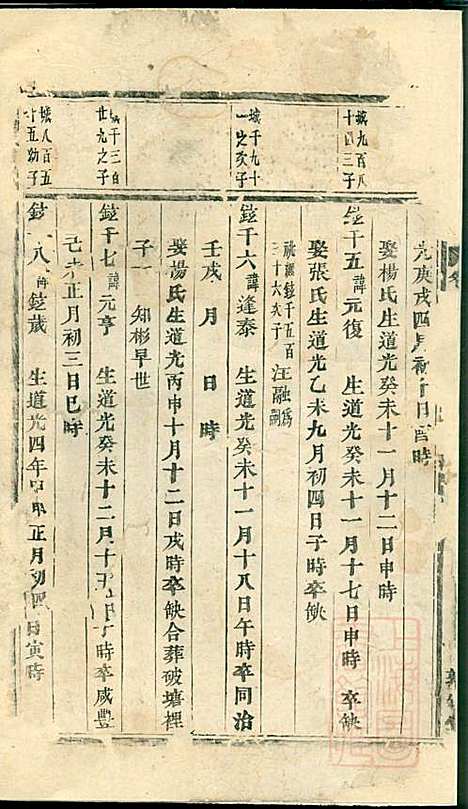 光庚戌四月初十日酉時
娶楊氏生道光癸未十一月十二日申時
城九百八
十四三子
鎡千五諱元復 生道光癸未十一月十七日申時 卒缺
娶張氏生道光乙未九月初四日子時卒缺
鎡千五百
三十六次子
汪融為嗣
城千九十
一之次子
鎡千六諱逢泰 生道光癸未十一月十八日午時卒同治
壬戌 月 日時
娶楊氏生道光丙申十月十二日戌時卒缺合葬破塘裡
子一 知彬早世
千三百
廿九之子
鎡千七諱元亨 生道光癸未十二月十五日 時卒咸豐
己未正月初三日巳時
城八百五
十五幼子
鎡 八諱鎡崴 生道光四年甲申正月初四日寅時